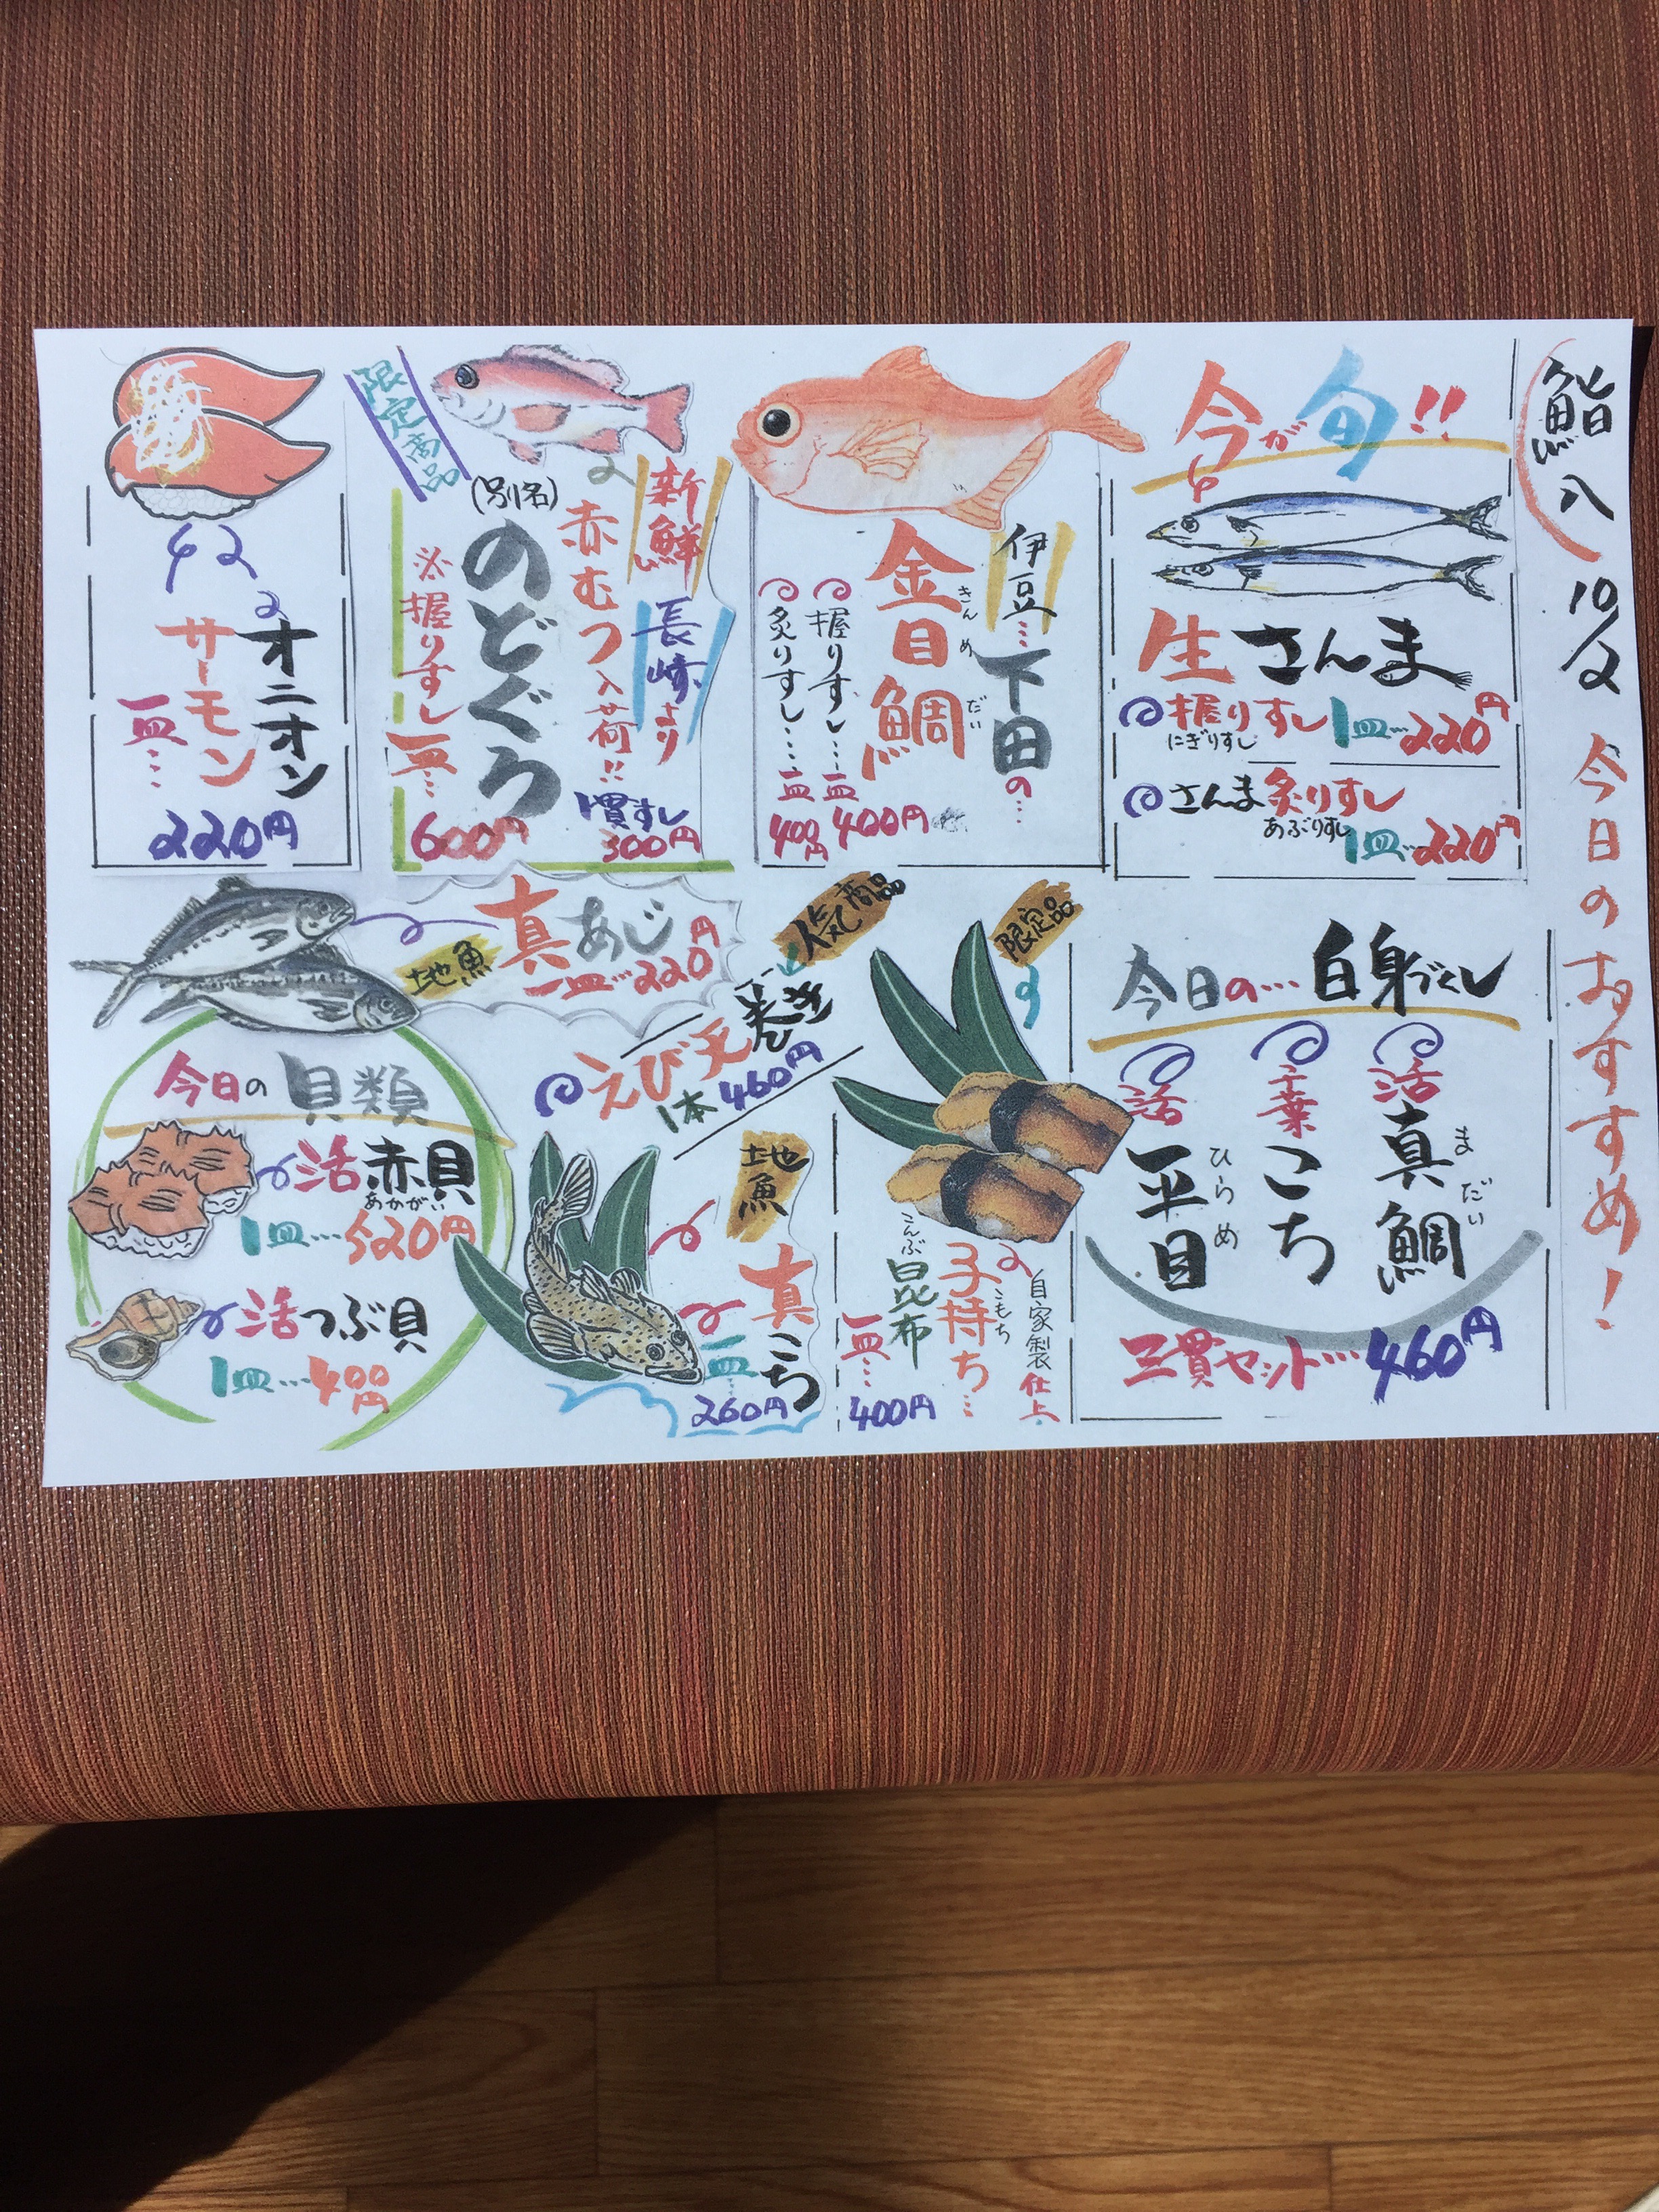 鮨八
10/2
今日のおすすめ!
今が旬!!
生さんま
握りすし 1皿…220円
にぎりすし
さんま炙りすし
あぶりすし
1皿…220円
伊豆…下田の…
金目鯛
きんめだい
握りすし…一皿400円
炙りすし…一皿400円
限定商品
新鮮
長崎より
赤むつ入荷!!
(別名)
のどぐろ
※握りすし一皿…
600円
1貫すし
300円
オニオン
サーモン
一皿…
220円
今日の…白身づくし
活真鯛
まだい
千葉こち
活平目
ひらめ
三貫セット…460円
限定品
自家製仕上
子持ち…
こもち
昆布
こんぶ
一皿…
400円
人気商品
えび天巻き
1本460円
地魚
真あじ
一皿…220円
地魚
真こち
一皿…
260円
今日の貝類
活赤貝
あかがい
1皿…520円
活つぶ貝
1皿…400円